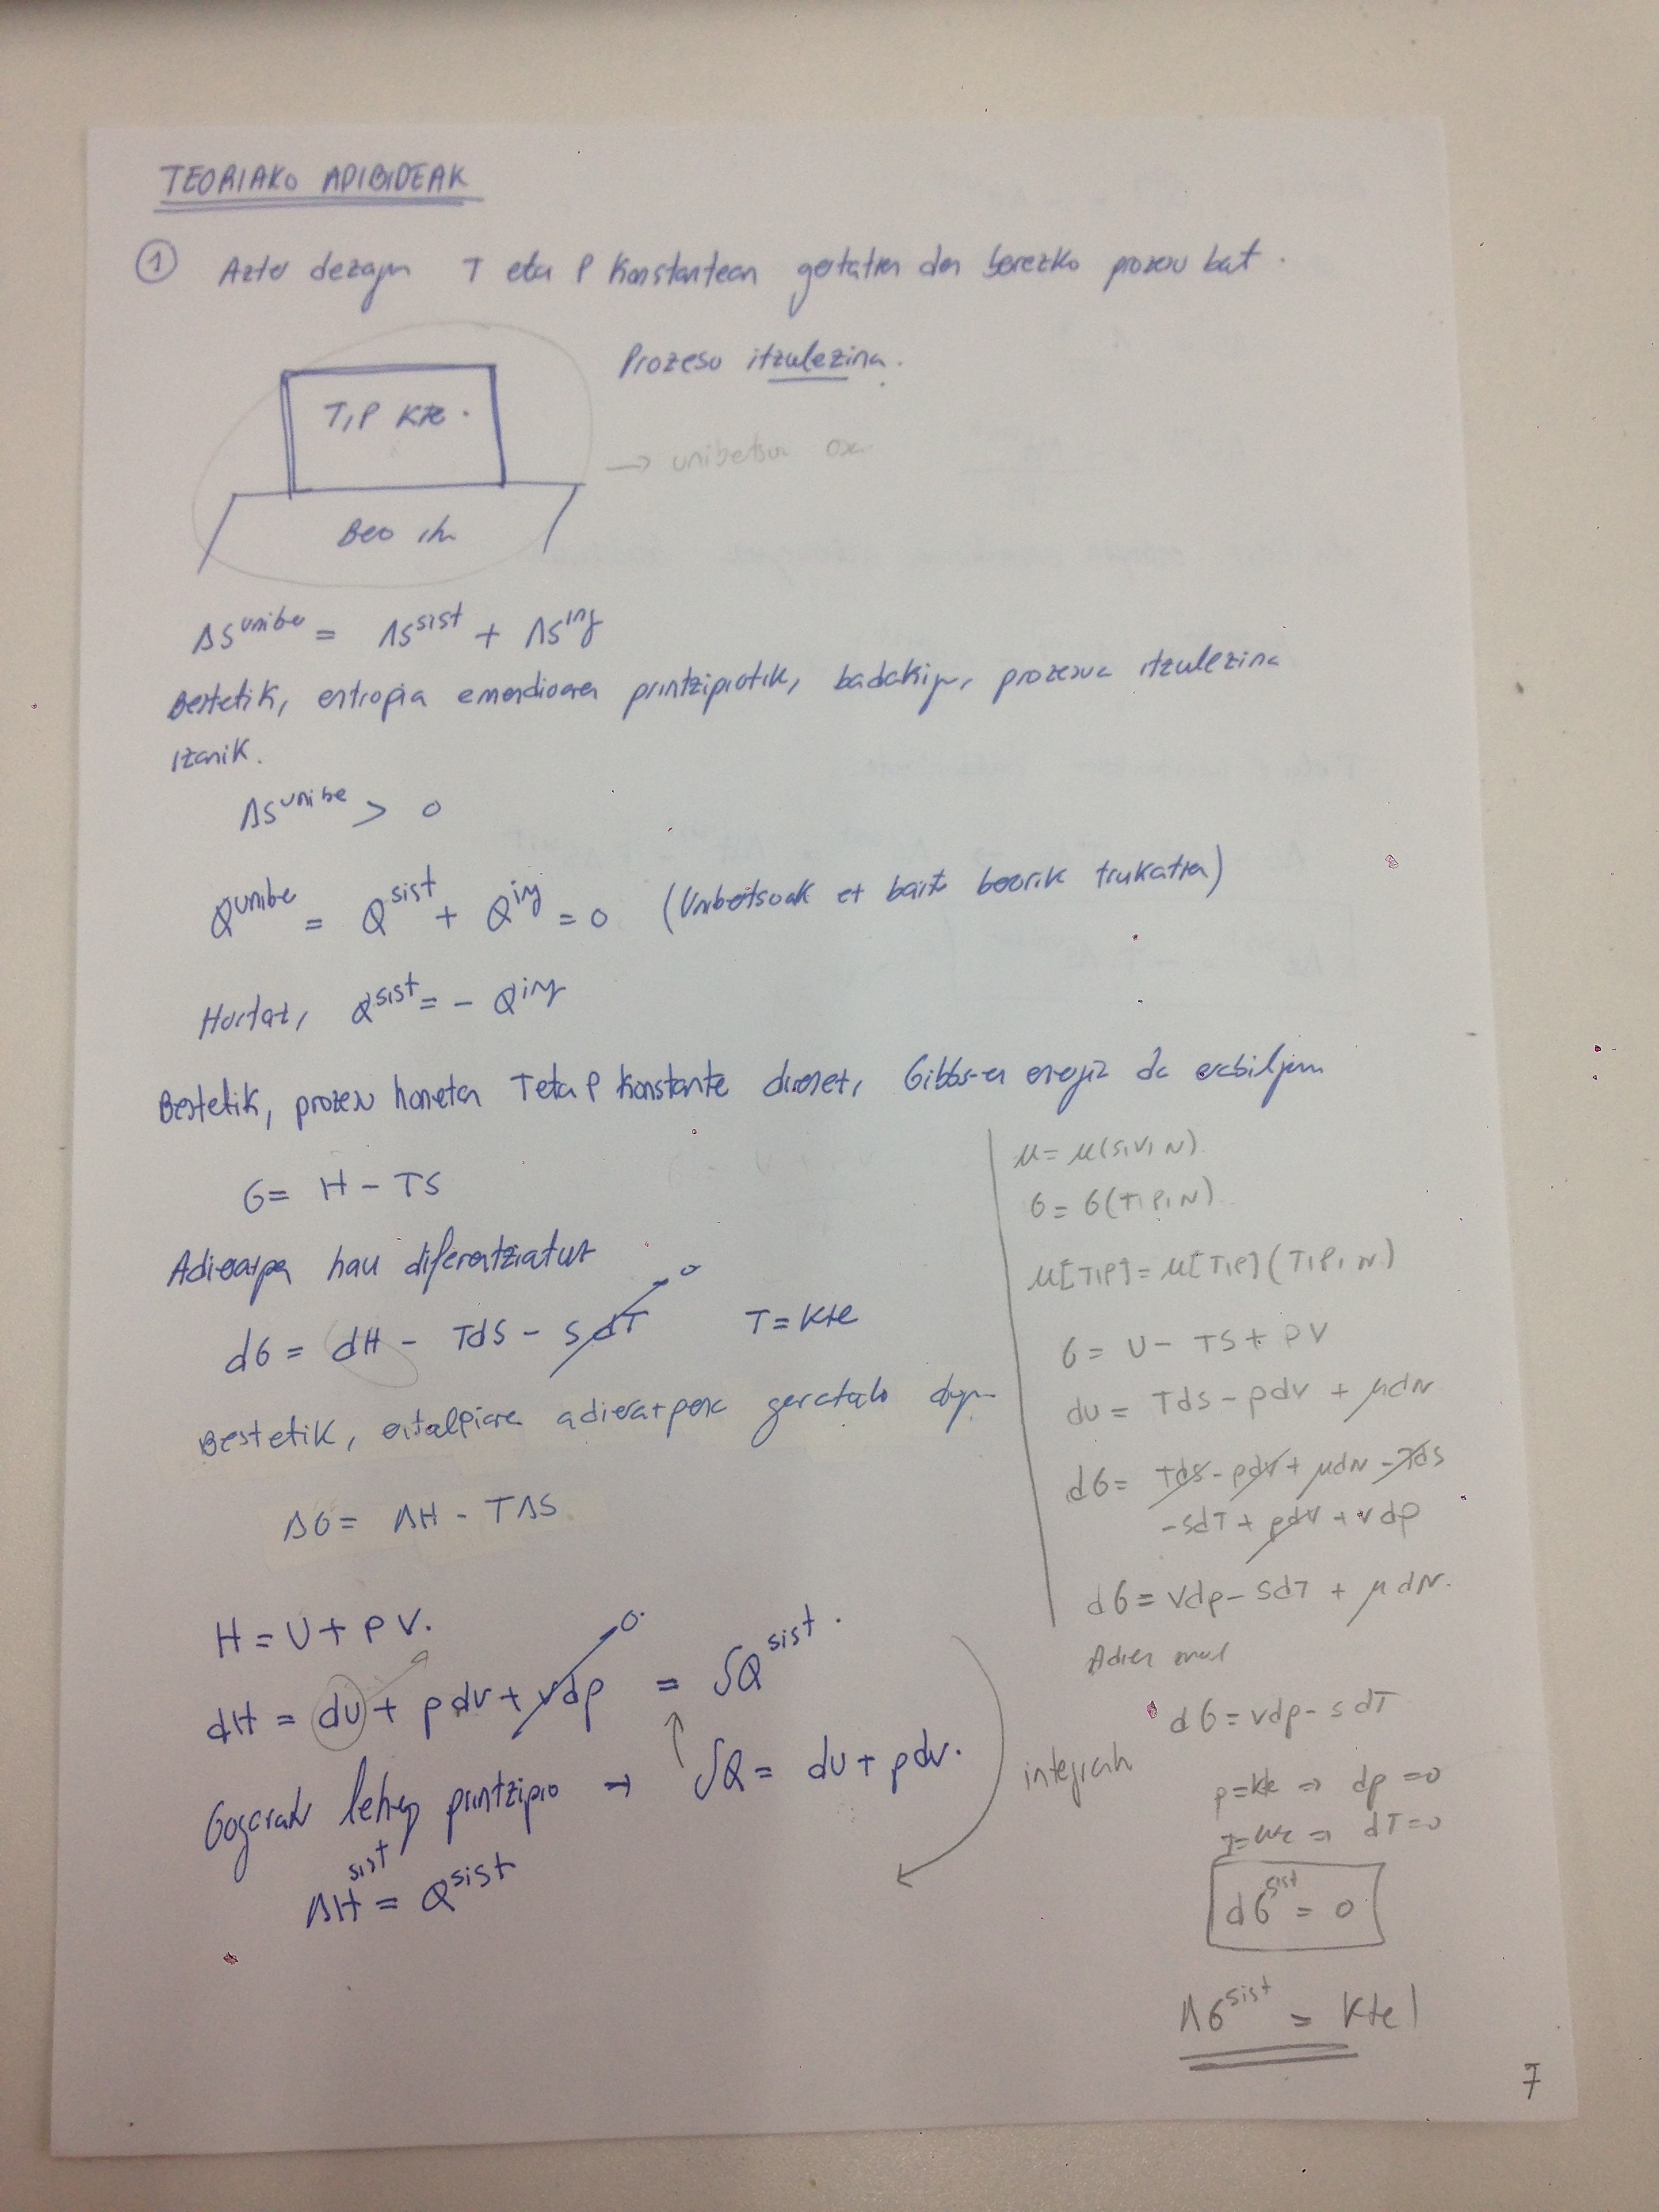 TEORIAKO ADIBIDEAK
① Azter dezagun T eta P konstantean gertatzen den berezko prozesu bat.
Prozesu itzulezina.
T,P kte.
→ unibertsoa
Bero
ΔS^unibe = ΔS^sist + ΔS^ing
Bestetik, entropia emendioaren printzipiotik, badakigu, prozesua itzulezina
izanik.
ΔS^unibe > 0
Q^unibe = Q^sist + Q^ing = 0 (Unibertsoak ez baitu berorik trukatzen)
Hortaz, Q^sist = - Q^ing
Bestetik, prozesu honetan T eta P konstante direnez, Gibbs-en energia da erabilgarri
G = H - TS
Adierazpen hau diferentziatuz
dG = dH - TdS - SdT → 0 T = kte
Bestetik, entalpiaren adierazpena garatuko dugu
ΔG = ΔH - TΔS.
H = U + PV.
dH = dU + pdV + Vdp → 0 = δQ^sist.
Gogoratu lehen printzipio → δQ = dU + pdV.
ΔH^sist = Q^sist
integratu
u = u(s,v,N)
G = G(T,P,N)
u[T,P] = u[T,P](T,P,N)
G = U - TS + PV
dU = TdS - pdV + μdN
dG = TdS - pdV + μdN - TdS
- SdT + pdV + Vdp
dG = Vdp - SdT + μdN.
dG = Vdp - SdT
p = kte ⇒ dp = 0
T = kte ⇒ dT = 0
dG^sist = 0
ΔG^sist = kte!
7